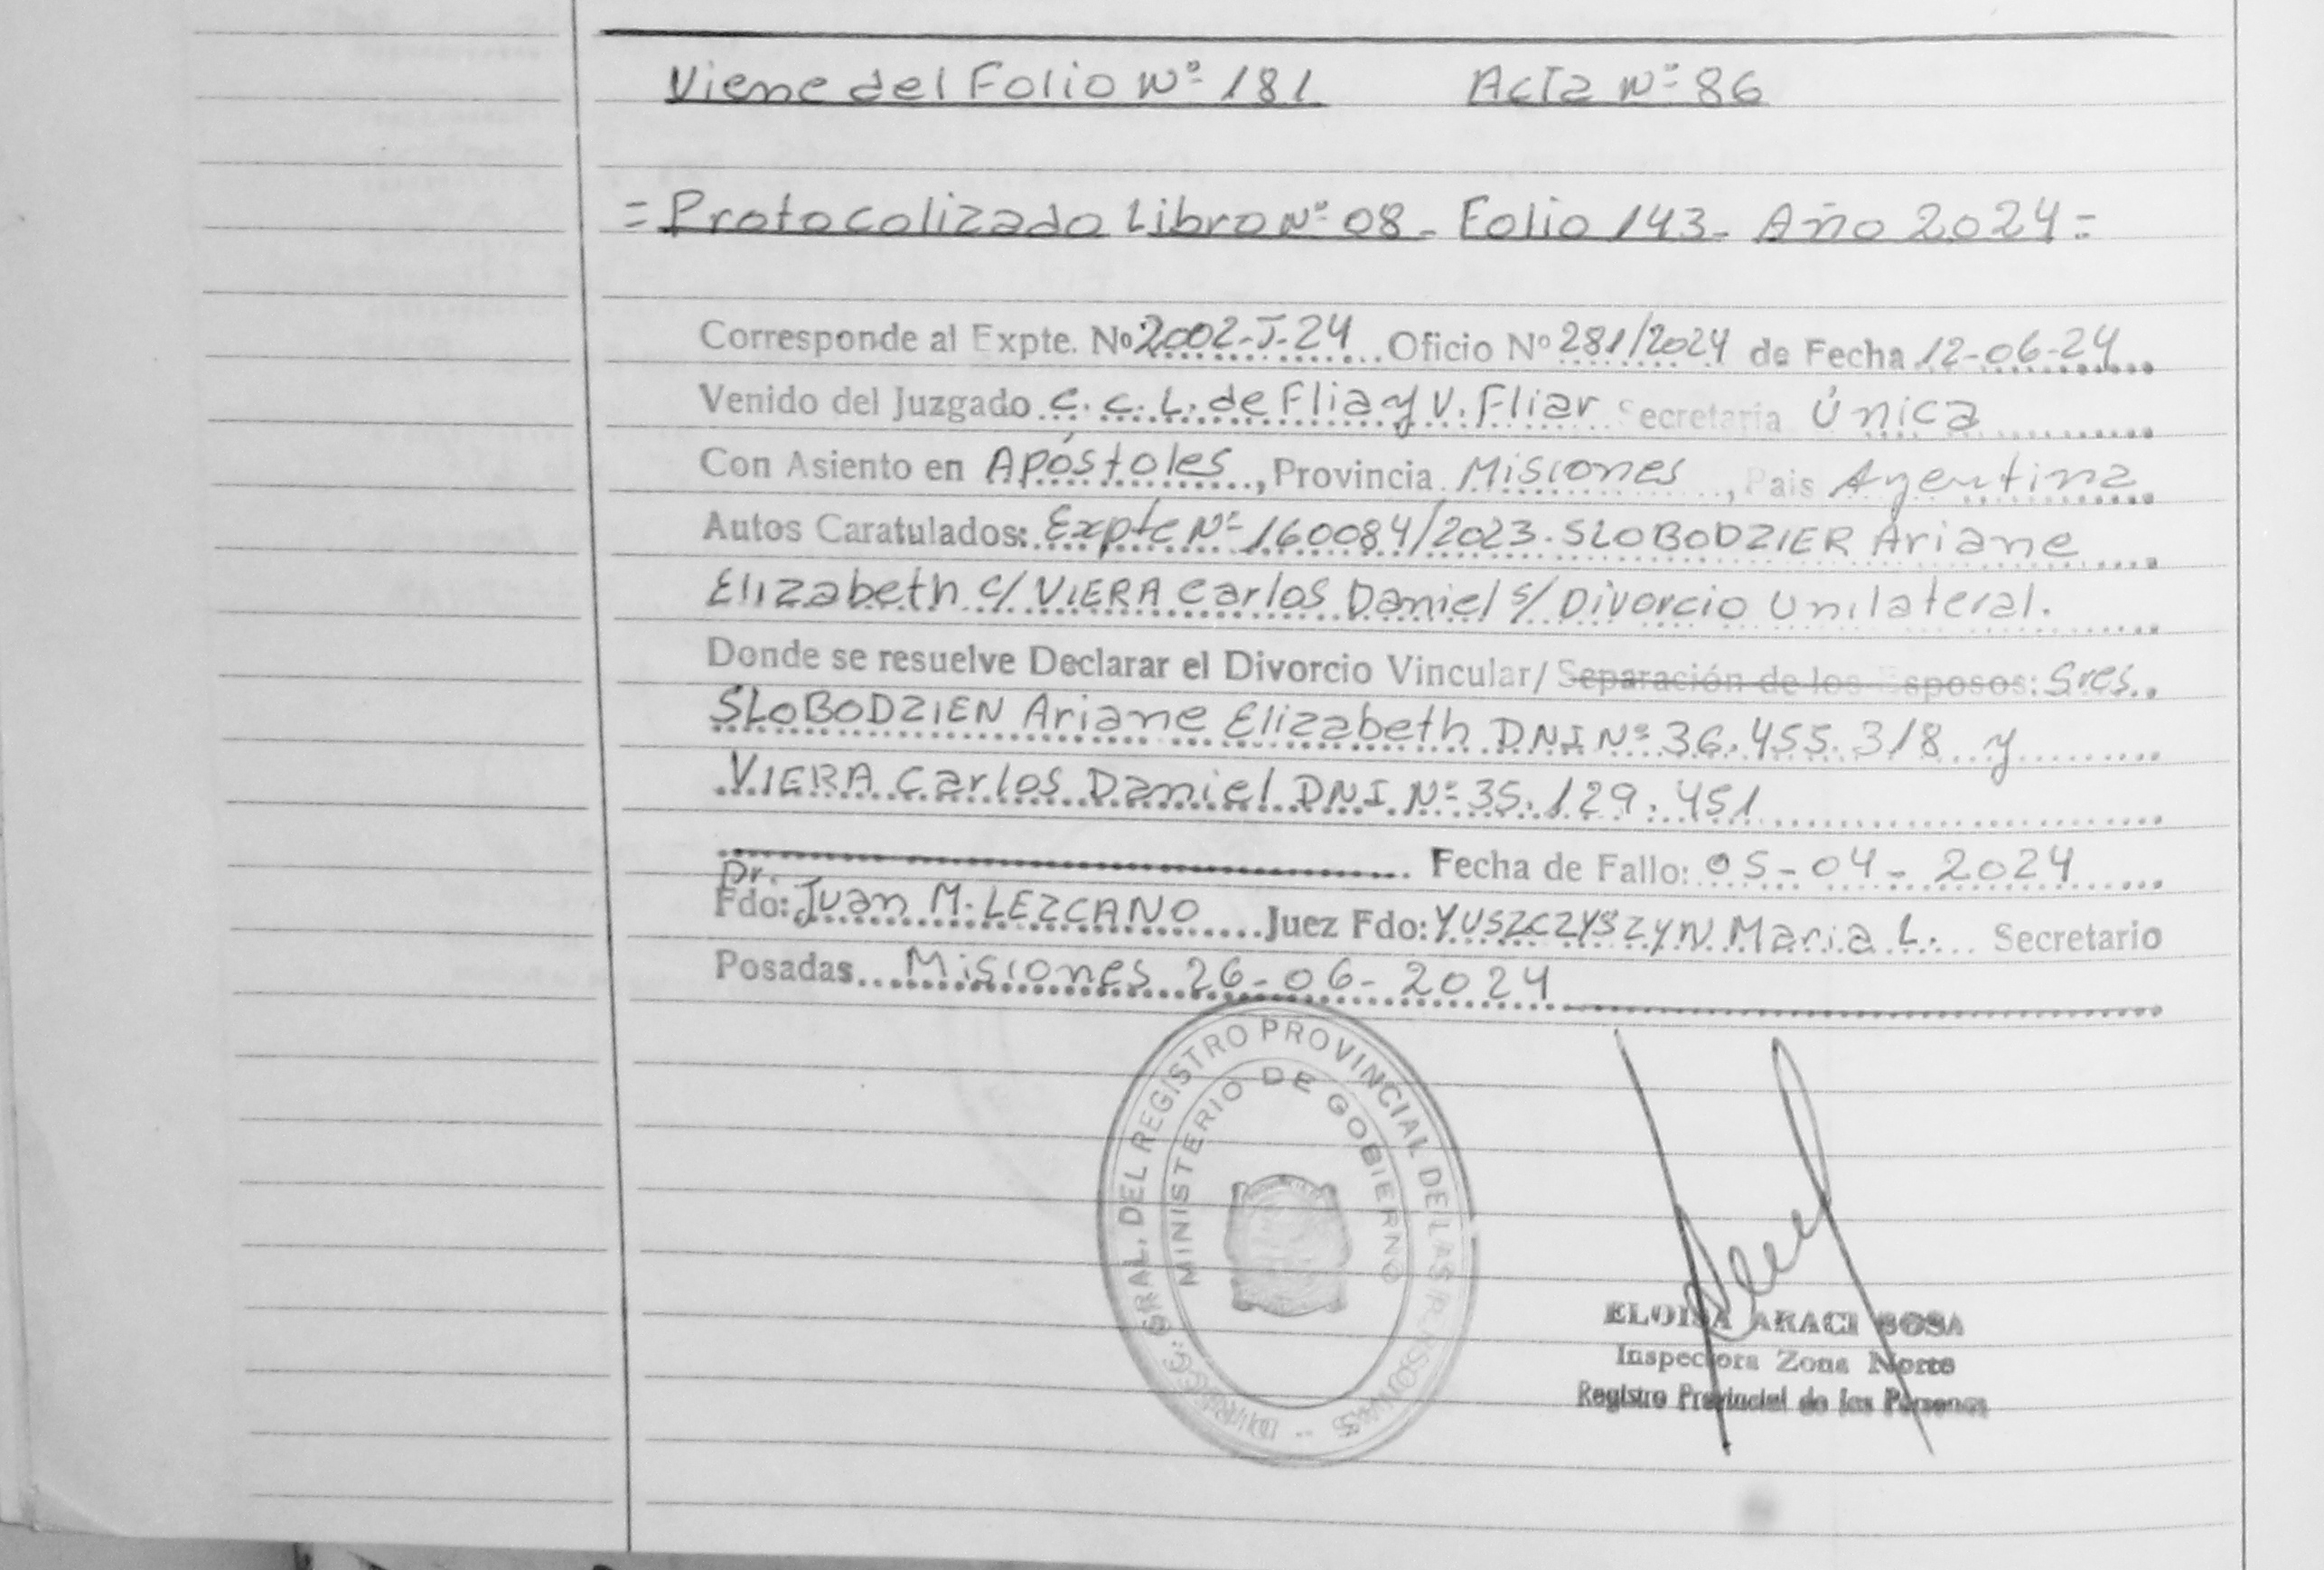 Viene del Folio Nº 181 Acta Nº 86
= Protocolizado Libro Nº 08 - Folio 143 - Año 2024 =
Corresponde al Expte. Nº 2002-J-24 Oficio Nº 281/2024 de Fecha 12-06-24
Venido del Juzgado C. C. L. de Flia y V. Fliar Secretaría Única
Con Asiento en Apóstoles, Provincia Misiones, Pais Argentina
Autos Caratulados: Expte Nº 160084/2023. SLOBODZIER Ariane
Elizabeth c/ VIERA Carlos Daniel s/ Divorcio Unilateral.
Donde se resuelve Declarar el Divorcio Vincular/ Separación de los Esposos: Sres.
SLOBODZIEN Ariane Elizabeth DNI Nº 36.455.318 y
VIERA Carlos Daniel DNI Nº 35.129.451
Fecha de Fallo: 05-04-2024
Dr.
Fdo: Juan M. LEZCANO Juez Fdo: YUSZCZYSZYN Maria L. Secretario
Posadas Misiones 26-06-2024
GRAL. DEL REGISTRO PROVINCIAL DE LAS PERSONAS
MINISTERIO DE GOBIERNO
ELOISA ARACI SOSA
Inspectora Zona Norte
Registro Provincial de las Personas